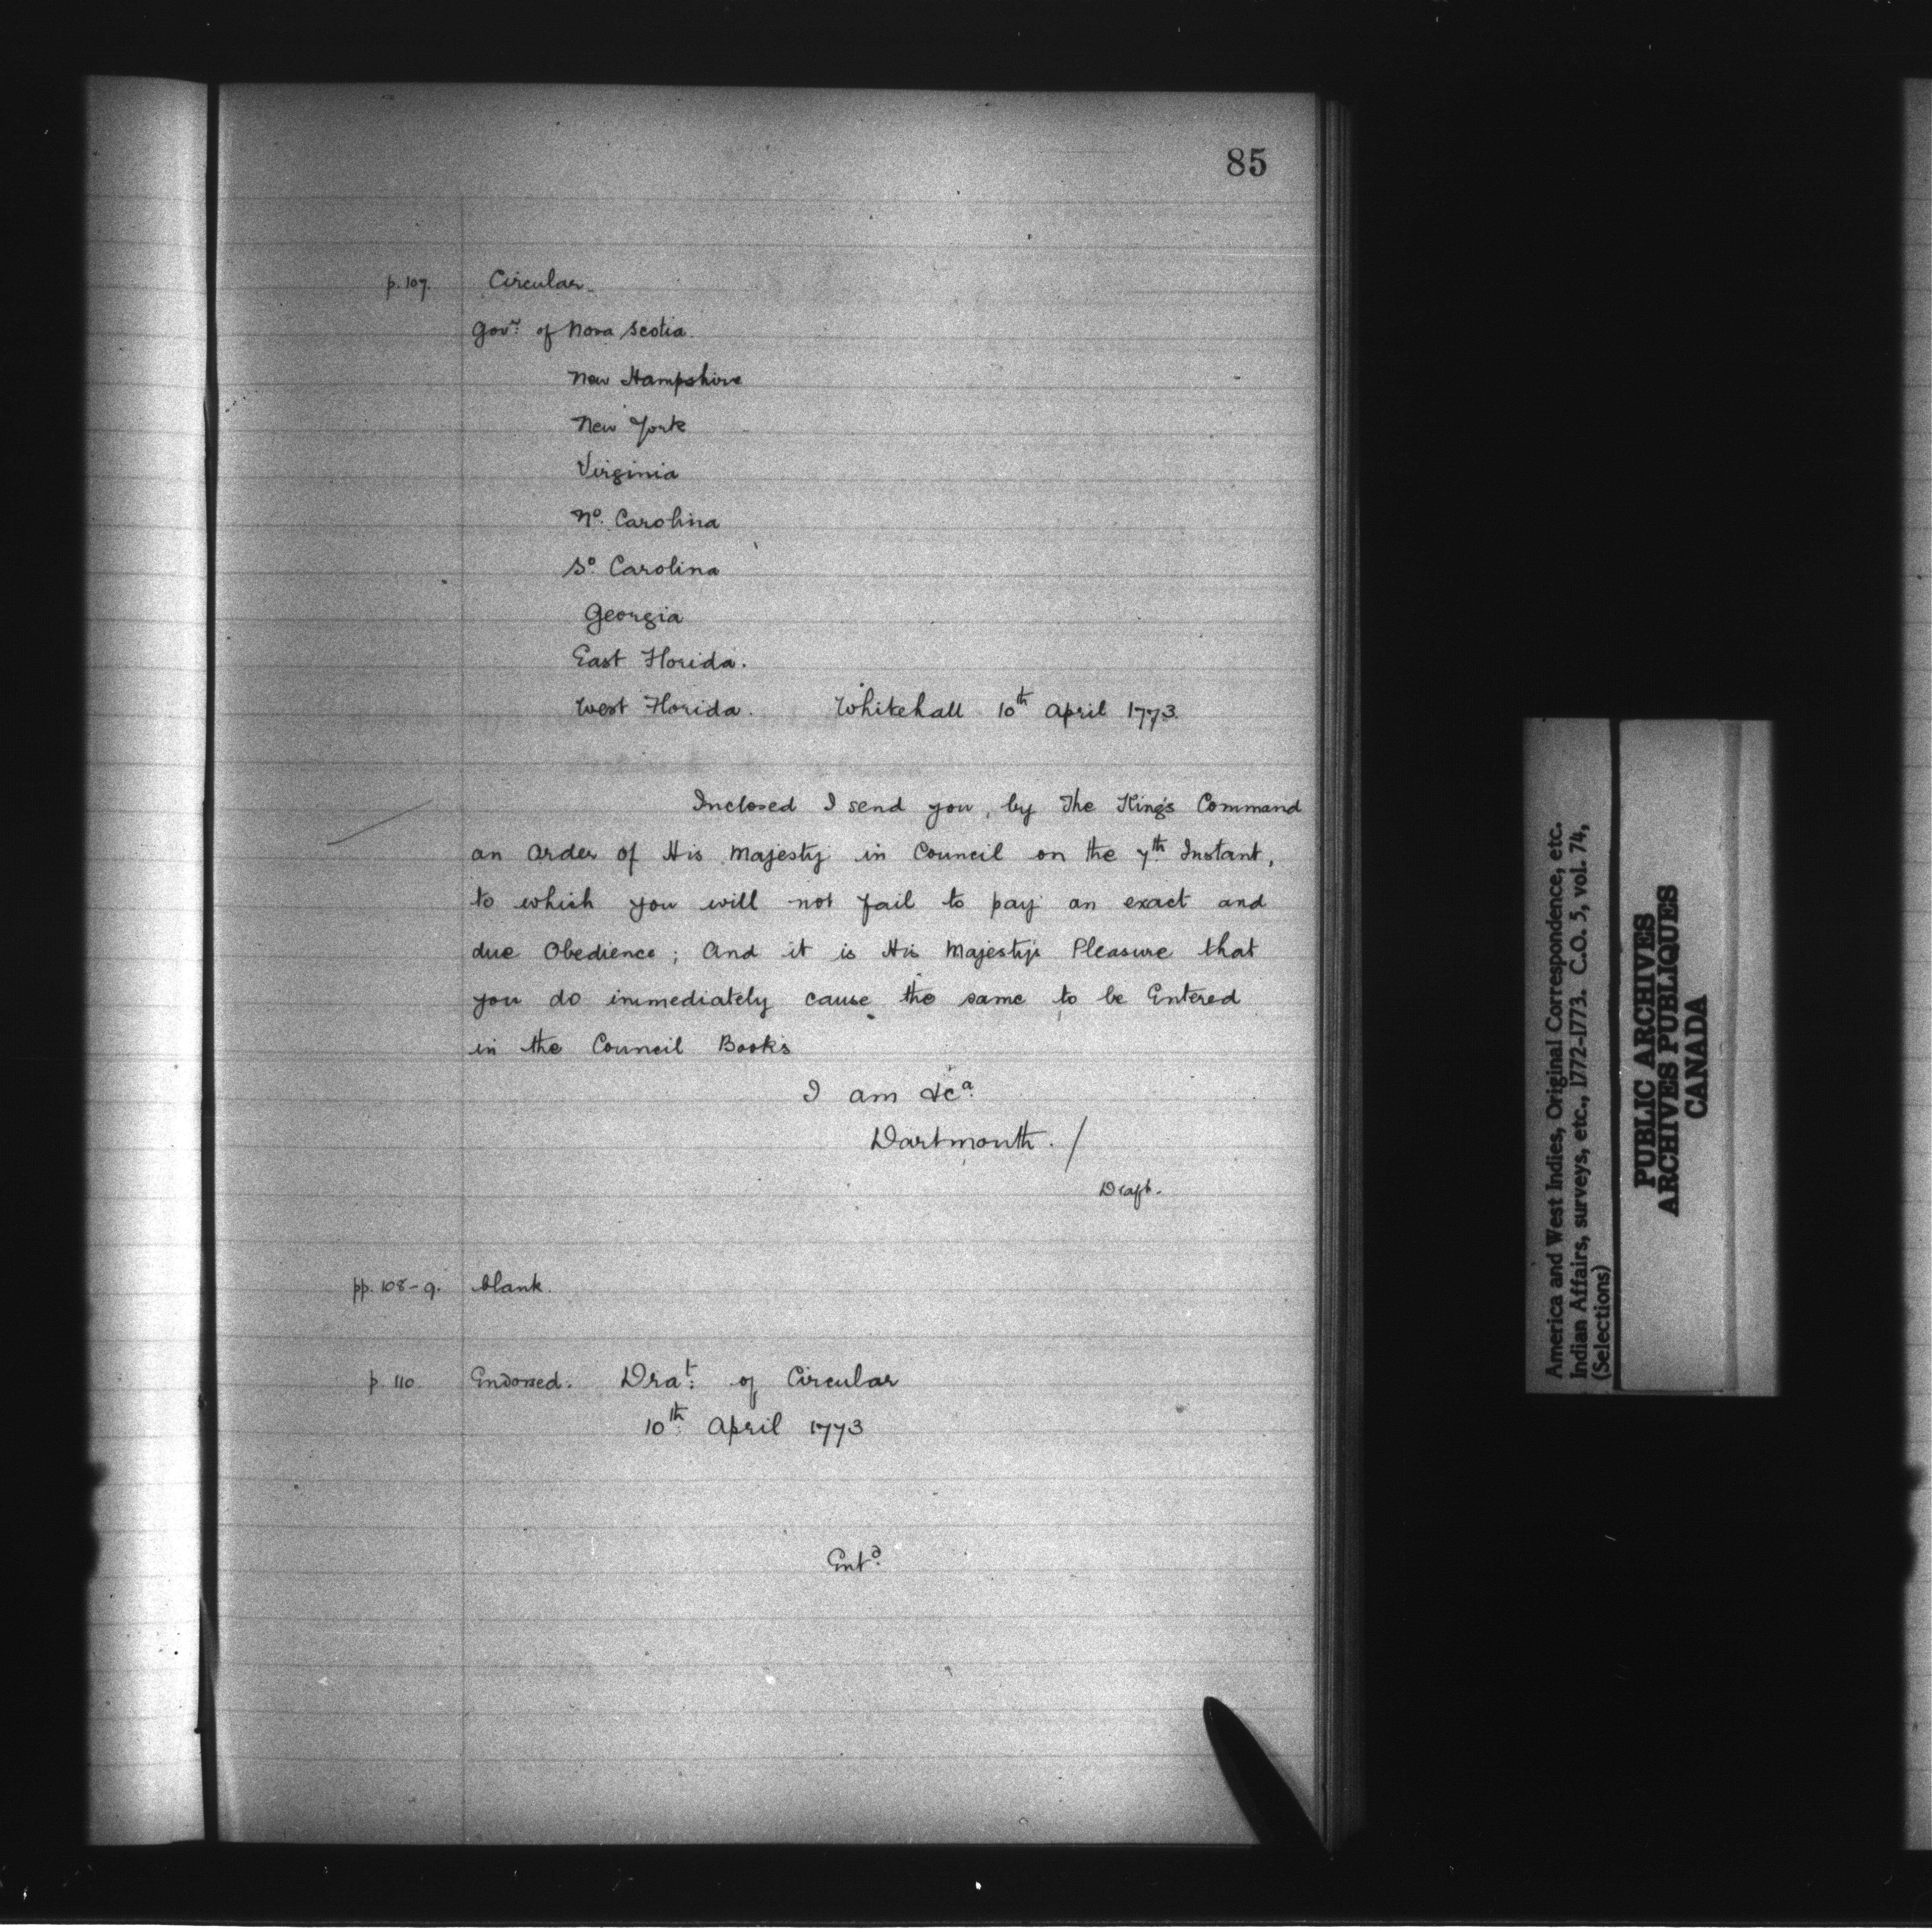 85
p. 107. Circular.
Gov.r of Nova Scotia.
New Hampshire
New York
Virginia
No. Carolina
So. Carolina
Georgia
East Florida.
West Florida. Whitehall 10th April 1773.
Inclosed I send you, by The King's Command
an Order of His Majesty in Council on the 7th Instant,
to which you will not fail to pay an exact and
due Obedience; And it is His Majesty's Pleasure that
you do immediately cause the same to be Entered
in the Council Books
I am &ca.
Dartmouth. /
Draft.
pp. 108-9. blank.
p. 110. Endorsed. Dra.t: of Circular
10th April 1773
Ent.d
America and West Indies, Original Correspondence, etc.
Indian Affairs, surveys, etc., 1772-1773. C.O. 5, vol. 74,
(Selections)
PUBLIC ARCHIVES
ARCHIVES PUBLIQUES
CANADA